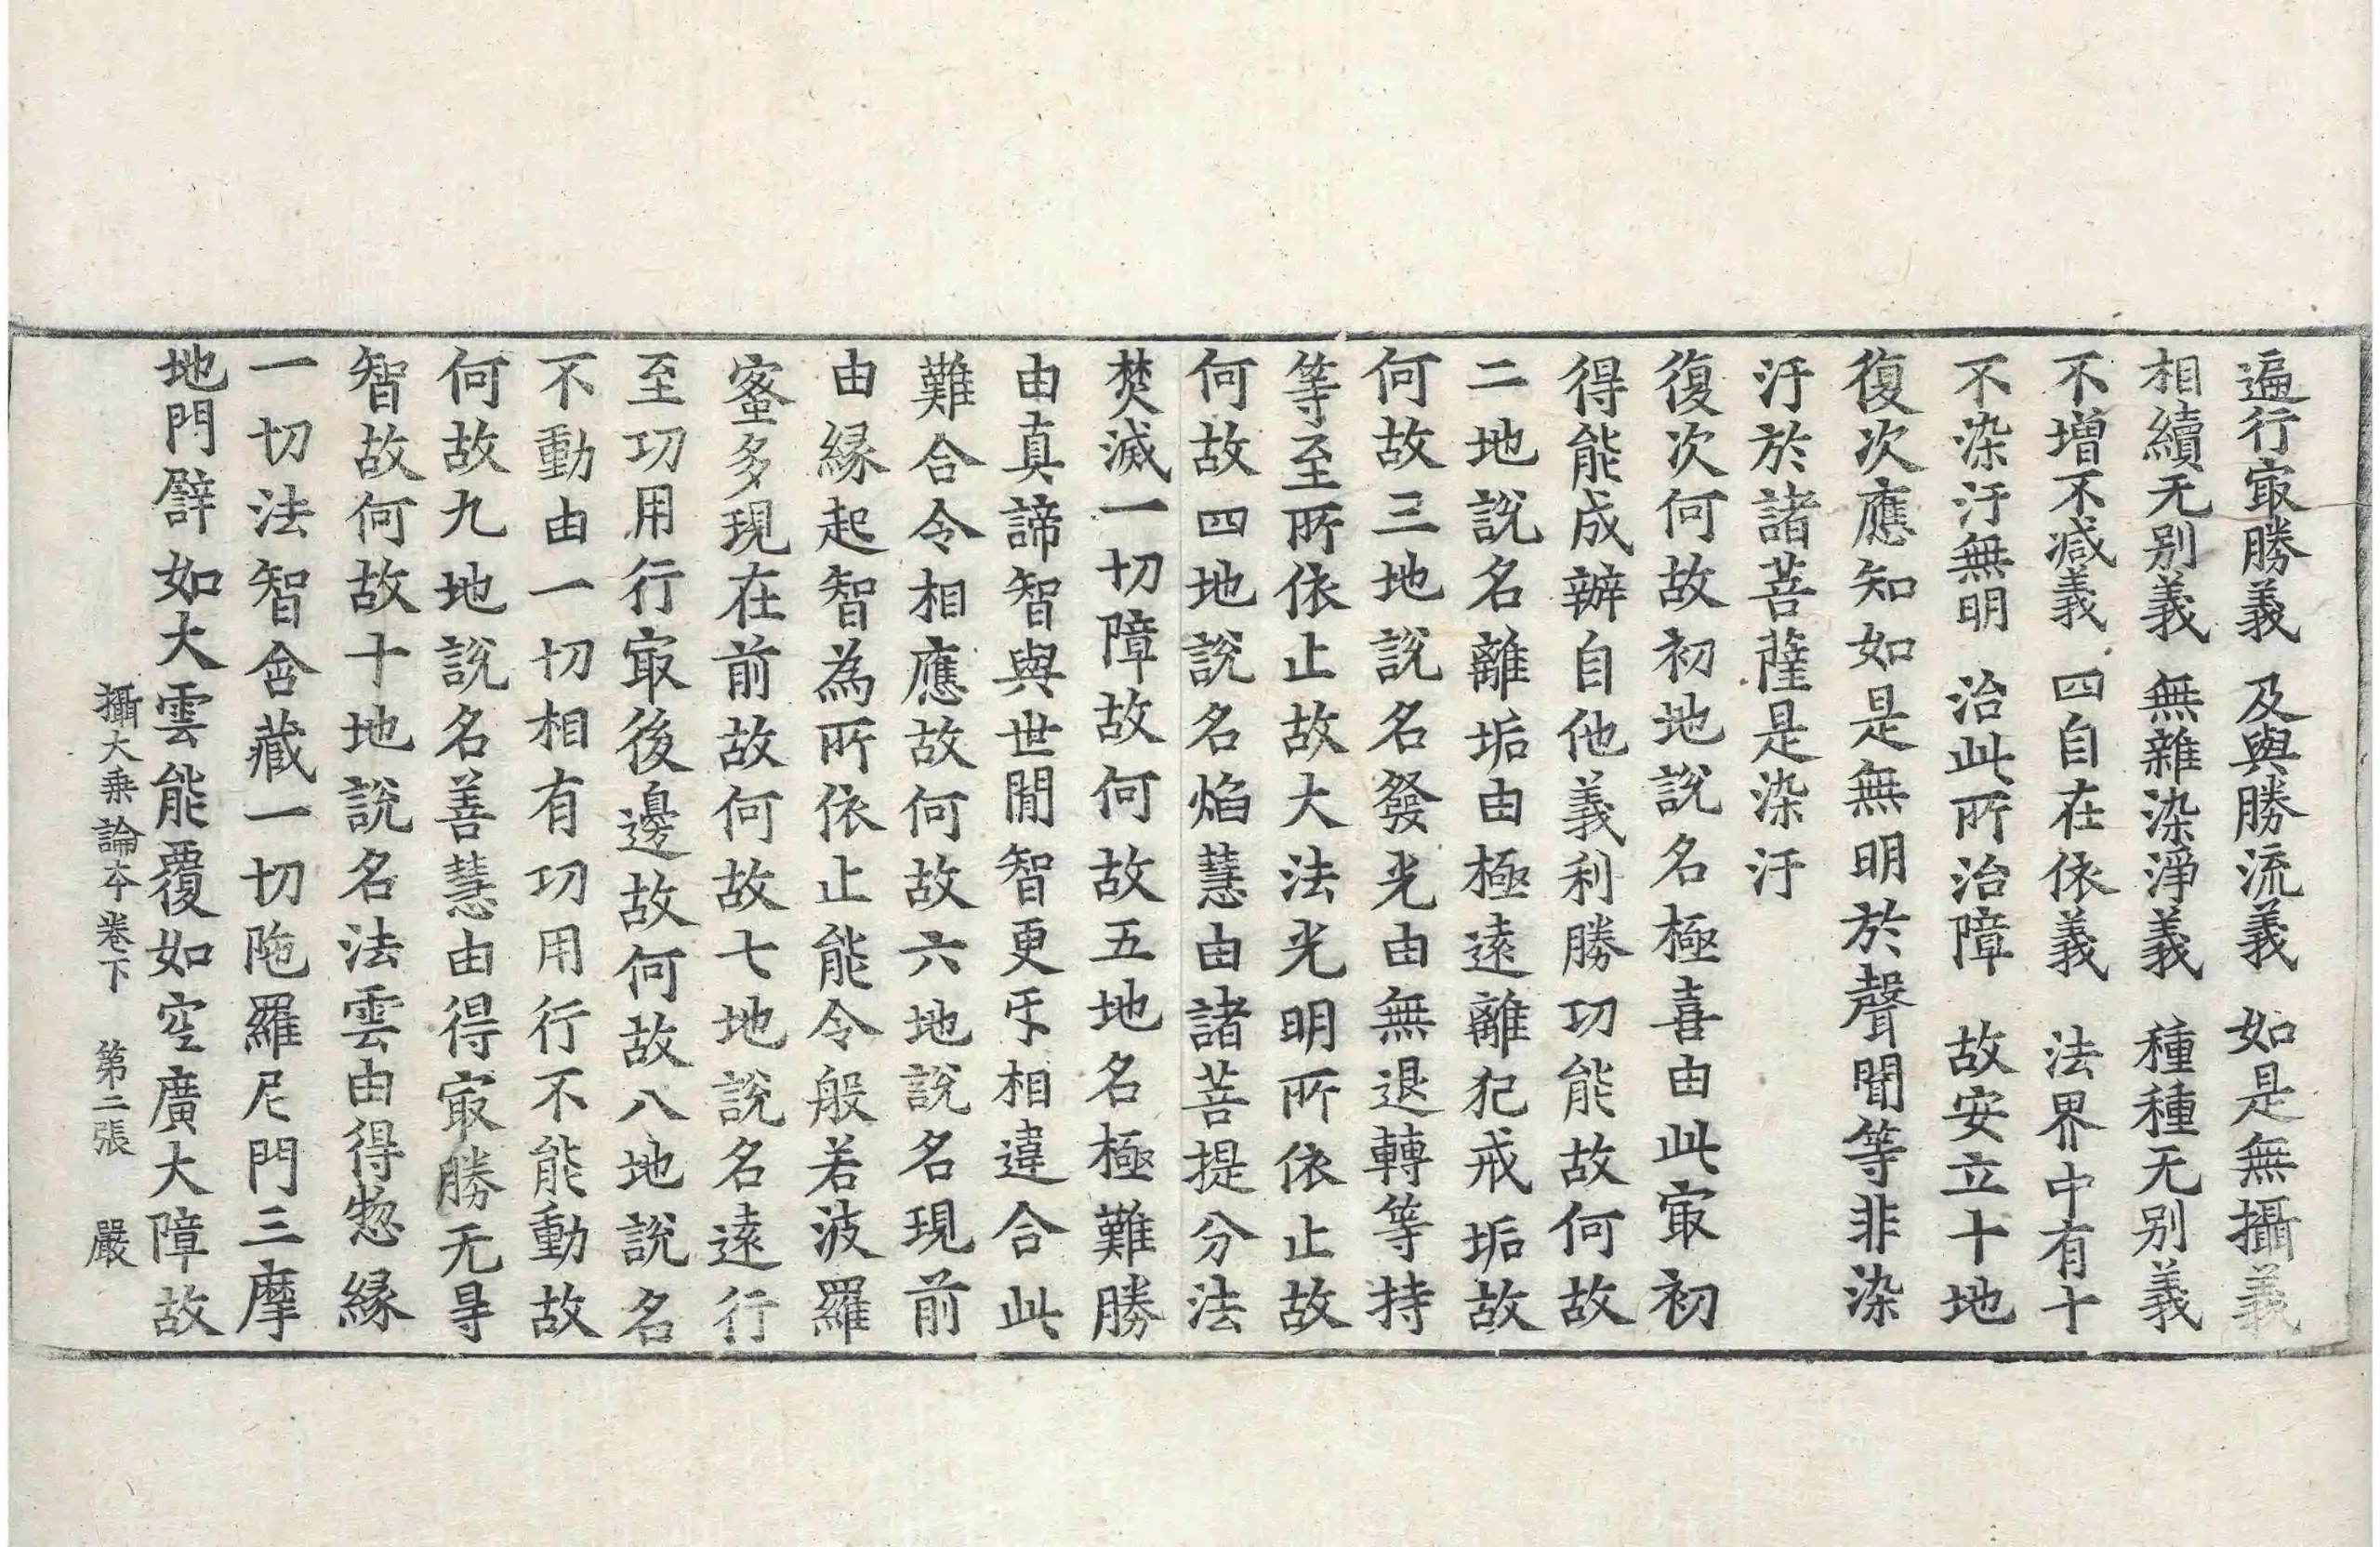 遍行㝡勝義　及與勝流義　如是無攝義
相續无别義　無雜染淨義　種種无别義
不增不减義　四自在依義　法界中有十
不染汙無明　治此所治障　故安立十地
復次應知如是無明於聲聞等非染
汙於諸菩薩是染汙
復次何故初地說名極喜由此㝡初
得能成辦自他義利勝功能故何故
二地說名離垢由極遠離犯戒垢故
何故三地說名發光由無退轉等持
等至所依止故大法光明所依止故
何故四地說名焰慧由諸菩提分法
焚滅一切障故何故五地名極難勝
由真諦智與世閒智更㸦相違合此
難合令相應故何故六地說名現前
由緣起智為所依止能令般若波羅
蜜多現在前故何故七地說名遠行
至功用行㝡後邊故何故八地說名
不動由一切相有功用行不能動故
何故九地說名善慧由得㝡勝无㝵
智故何故十地說名法雲由得惣緣
一切法智含藏一切陁羅尼門三摩
地門譬如大雲能覆如空廣大障故
攝大乘論夲卷下　第二張　嚴